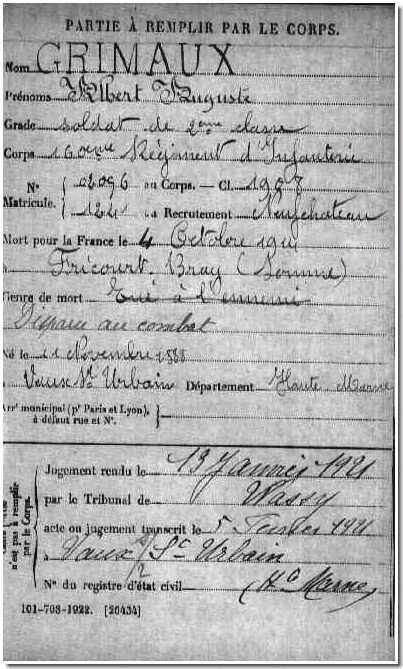 PARTIE À REMPLIR PAR LE CORPS.
Nom GRIMAUX
Prénoms Albert Auguste
Grade soldat de 2ème classe
Corps 160ème Régiment d'Infanterie
N° Matricule. { 02096 au Corps. — Cl. 1907
{ 1241 au Recrutement Neufchateau
Mort pour la France le 4 Octobre 1914
à Fricourt. Bray (Somme)
Genre de mort Tué à l'ennemi
Disparu au combat
Né le 11 Novembre 1888
à Vaux St Urbain Département Haute Marne
Arrt municipal (pr Paris et Lyon), à défaut rue et N°.
n'est pas à remplir par le Corps.
Jugement rendu le 13 Janvier 1921
par le Tribunal de Wassy
acte ou jugement transcrit le 5 Février 1921
à Vaux s/ St Urbain
N° du registre d'état civil (Hte Marne)
101-708-1922. [26434]